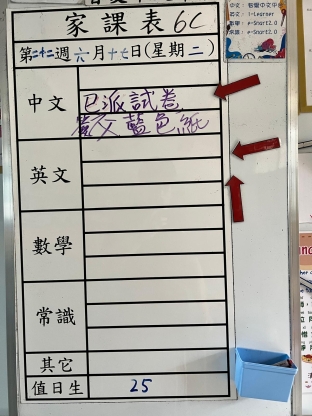 家課表 6C
第二十二週六月十七日(星期二)
中文
已派試卷
藍色紙
英文
數學
常識
其它
值日生 25
中文:智愛中文
英文:i-Learner
數學:e-Smart2.0
常識:e-Smart2.0